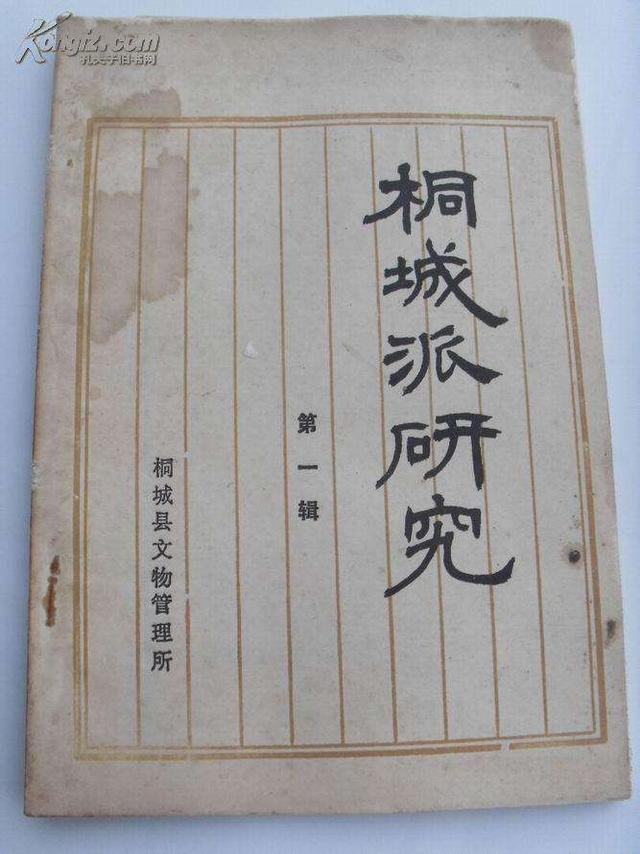 Kongfz.com
孔夫子旧书网
桐城派研究
第一辑
桐城县文物管理所